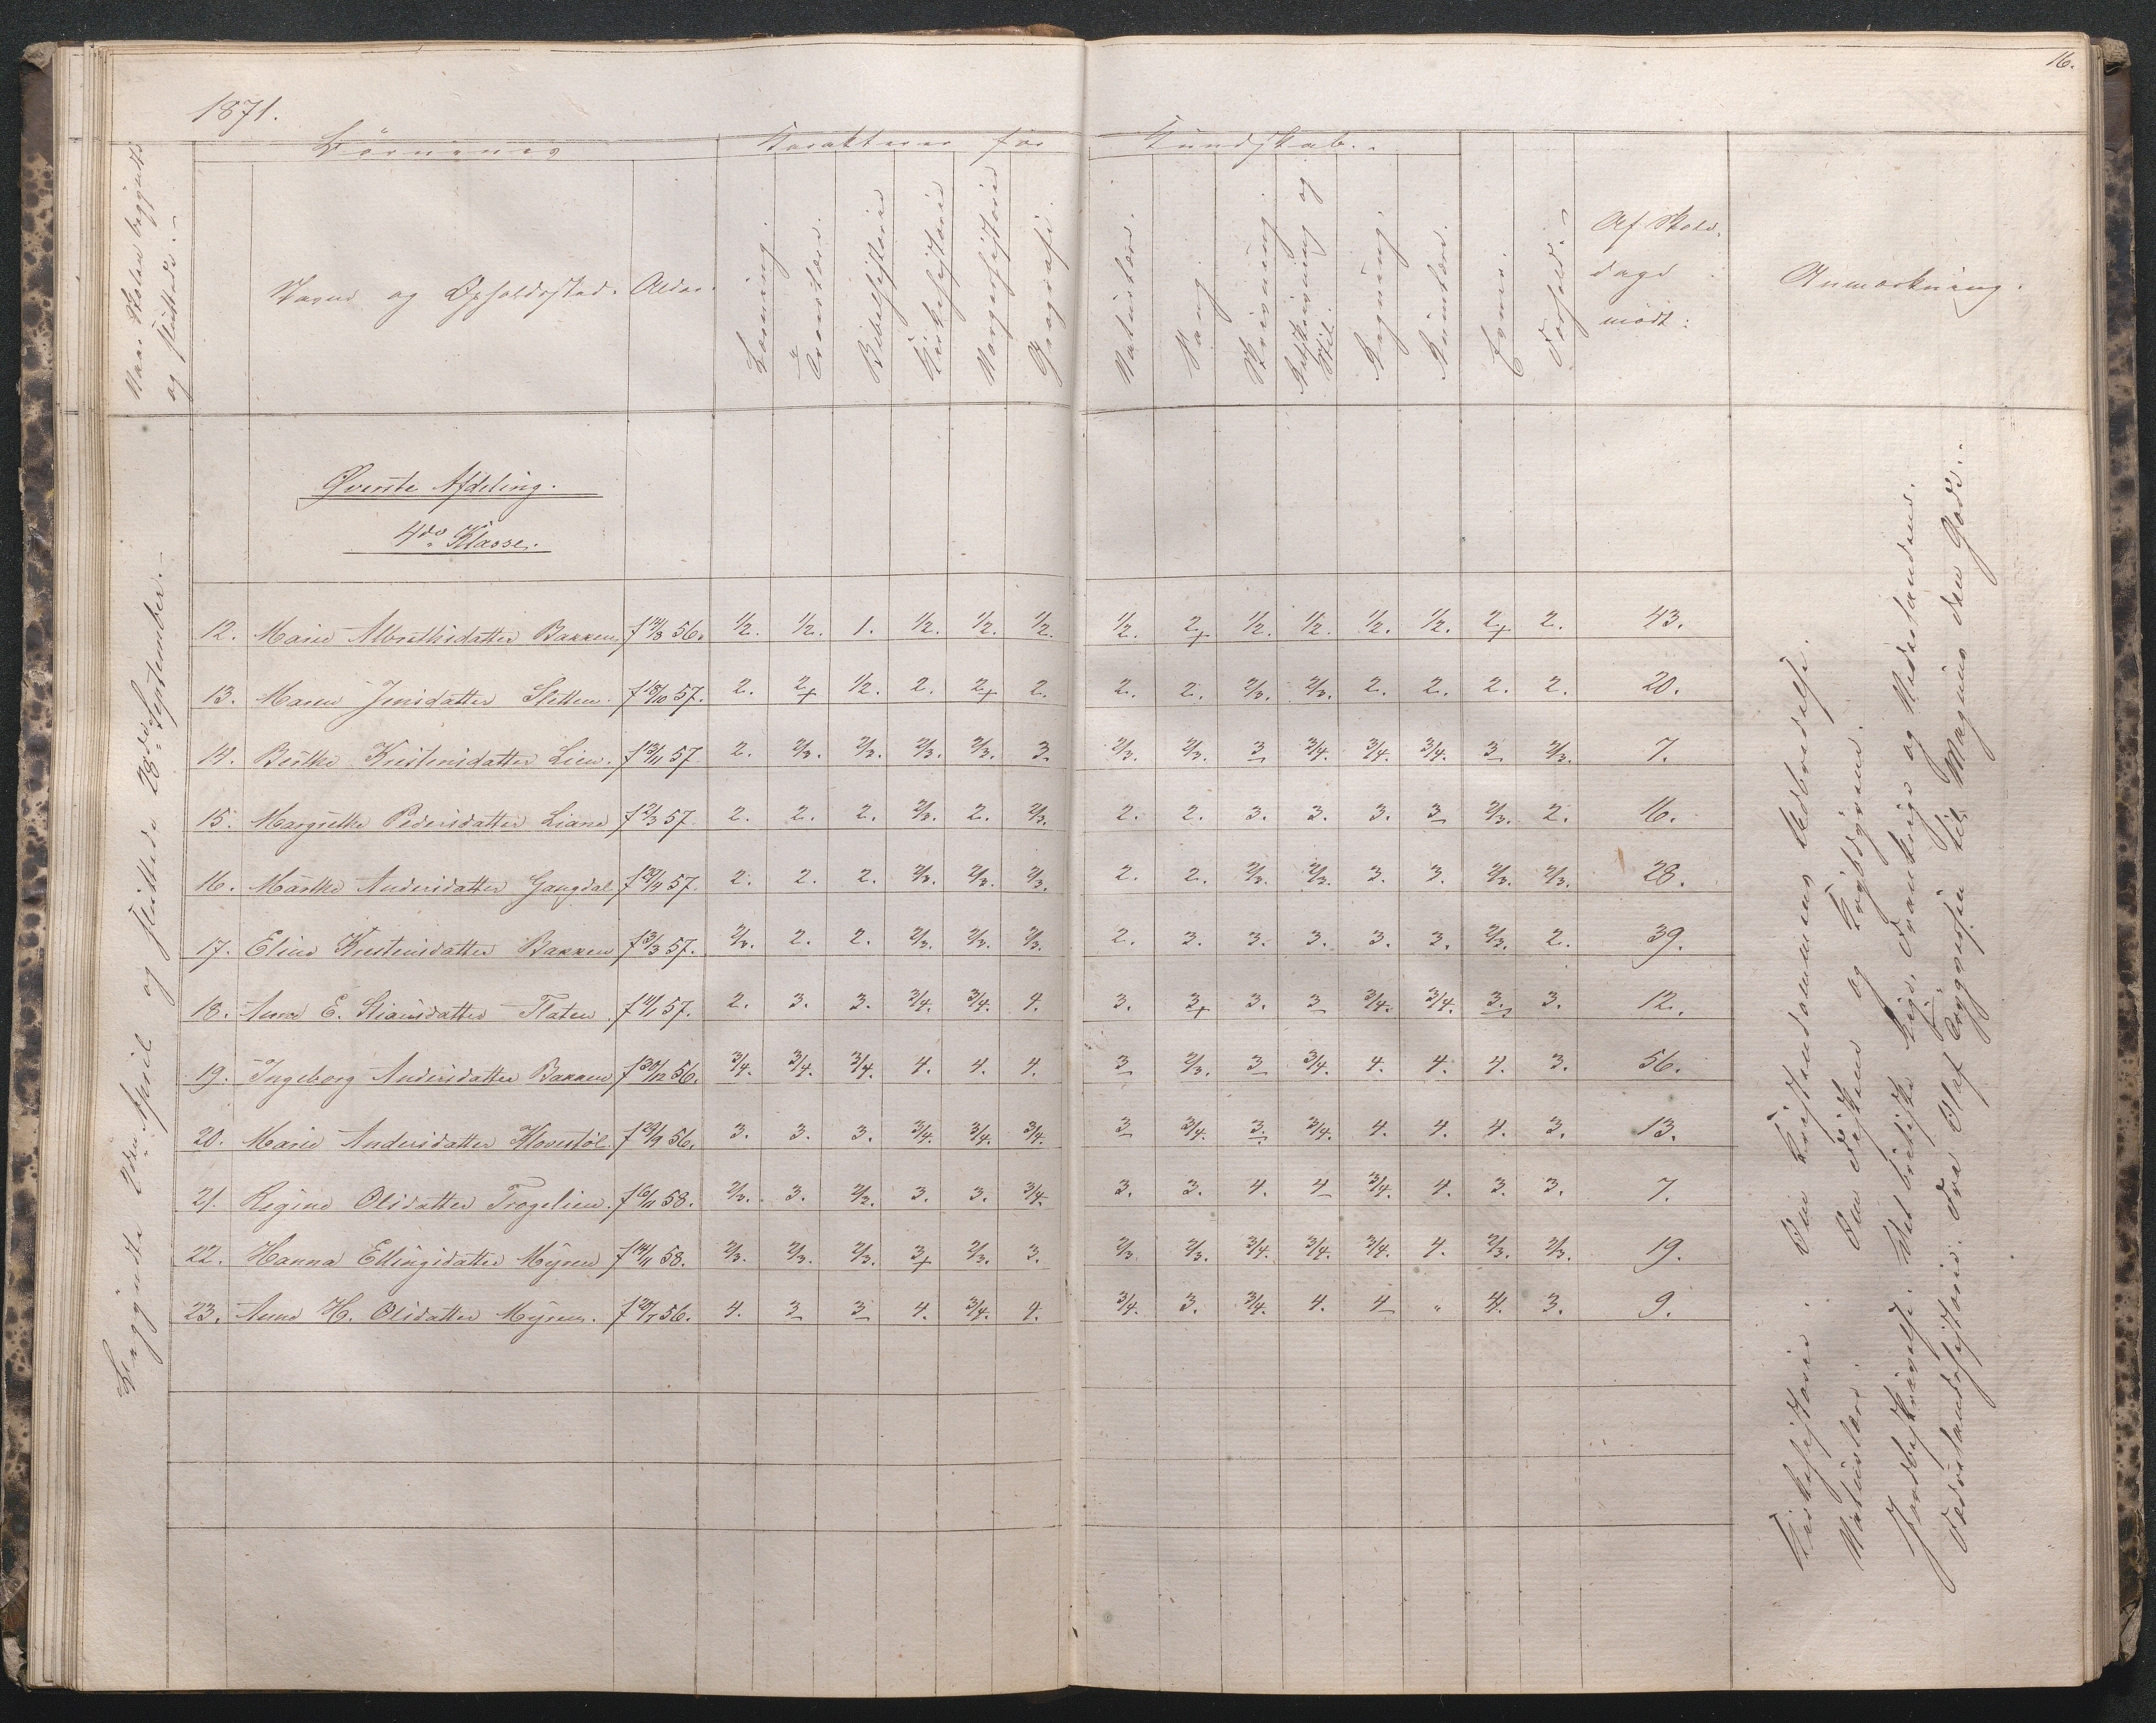 16.
1871.
Naar Skolen begyndte og sluttede.
Børnenes
Karakterer for
Kundskab.
Navne og Opholdssted.
Alder.
Læsning.
Troeslære.
Bibelhistorie
Kirkehistorie
Norgeshistorie
Geografi.
Naturlære.
Sang.
Skrivning.
Retskrivning og Stil.
Regning.
Formlære.
Evner.
Forhold.
Af Skole-
dage
mødt:
Anmærkning.
Øverste Afdeling.
4de Klasse.
Begyndte 2den April og sluttede 28de September.
12. Marie Albrethsdatter Bakken f 14/8 56. 1/2. 1/2. 1. 1/2. 1/2. 1/2. 1/2. 2+ 1/2. 1/2. 1/2. 1/2. 2+ 2. 43.
13. Maren Jensdatter Sletten. f 18/10 57. 2. 2+ 1/2. 2. 2+ 2. 2. 2. 2/3. 2/3. 2. 2. 2. 2. 20.
14. Berthe Kristensdatter Lien. f 13/11 57 2. 2/3. 2/3. 2/3. 2/3. 3. 2/3. 2/3. 3 3/4. 3/4. 3/4. 3 2/3. 7.
15. Margrethe Pedersdatter Liane f 2/3 57 2. 2. 2. 2/3. 2. 2/3. 2. 2. 3. 3. 3. 3 2/3. 2. 16.
16. Marthe Andersdatter Gangdal f 29/4 57. 2. 2. 2. 2/3. 2/3. 2/3. 2. 2. 2/3. 2/3. 3. 3. 2/3. 2/3. 28.
17. Eline Kristensdatter Bakken f 3/3 57. 2/3. 2. 2. 2/3. 2/3. 2/3. 2. 3. 3. 3. 3. 3. 2/3. 2. 39.
18. Anne E. Stiansdatter Flaten. f 11/1 57. 2. 3. 3. 3/4. 3/4. 4. 3. 3+ 3. 3 3/4. 3/4. 3. 3. 12.
19. Ingeborg Andersdatter Bakken f 30/12 56. 3/4. 3/4. 3/4. 4. 4. 4. 3 2/3. 3 3/4. 4. 4. 4. 3. 56.
20. Marie Andersdatter Hovestøl f 29/9 56. 3. 3. 3. 3/4. 3/4. 3/4. 3 3/4. 3. 3/4. 4. 4. 4. 3. 13.
21. Regine Olsdatter Trogelien. f 6/11 58. 2/3. 3. 2/3. 3. 3. 3/4. 3. 3. 4. 4 3/4. 4. 3. 3. 7.
22. Hanna Ellingsdatter Myren f 14/11 58. 2/3. 2/3. 2/3. 3+ 2/3. 3. 2/3 2/3. 3/4. 3/4. 3/4. 4. 2/3. 2/3. 19.
23. Anne H. Olsdatter Myren. f 29/7 56. 4. 3 3 4. 3/4. 4. 3/4. 3. 3/4. 4. 4 " 4. 3. 9.
Kirkehistorie: Om Kristendommens Udbredelse.
Naturlære: Om Fiskene og Krybdyrene.
Jordbeskrivelse: Det britiske Rige, Frankrige og Nederlandene.
Fædrelandshistorie: Fra Olaf Tryggvesøn til Magnus den Gode.